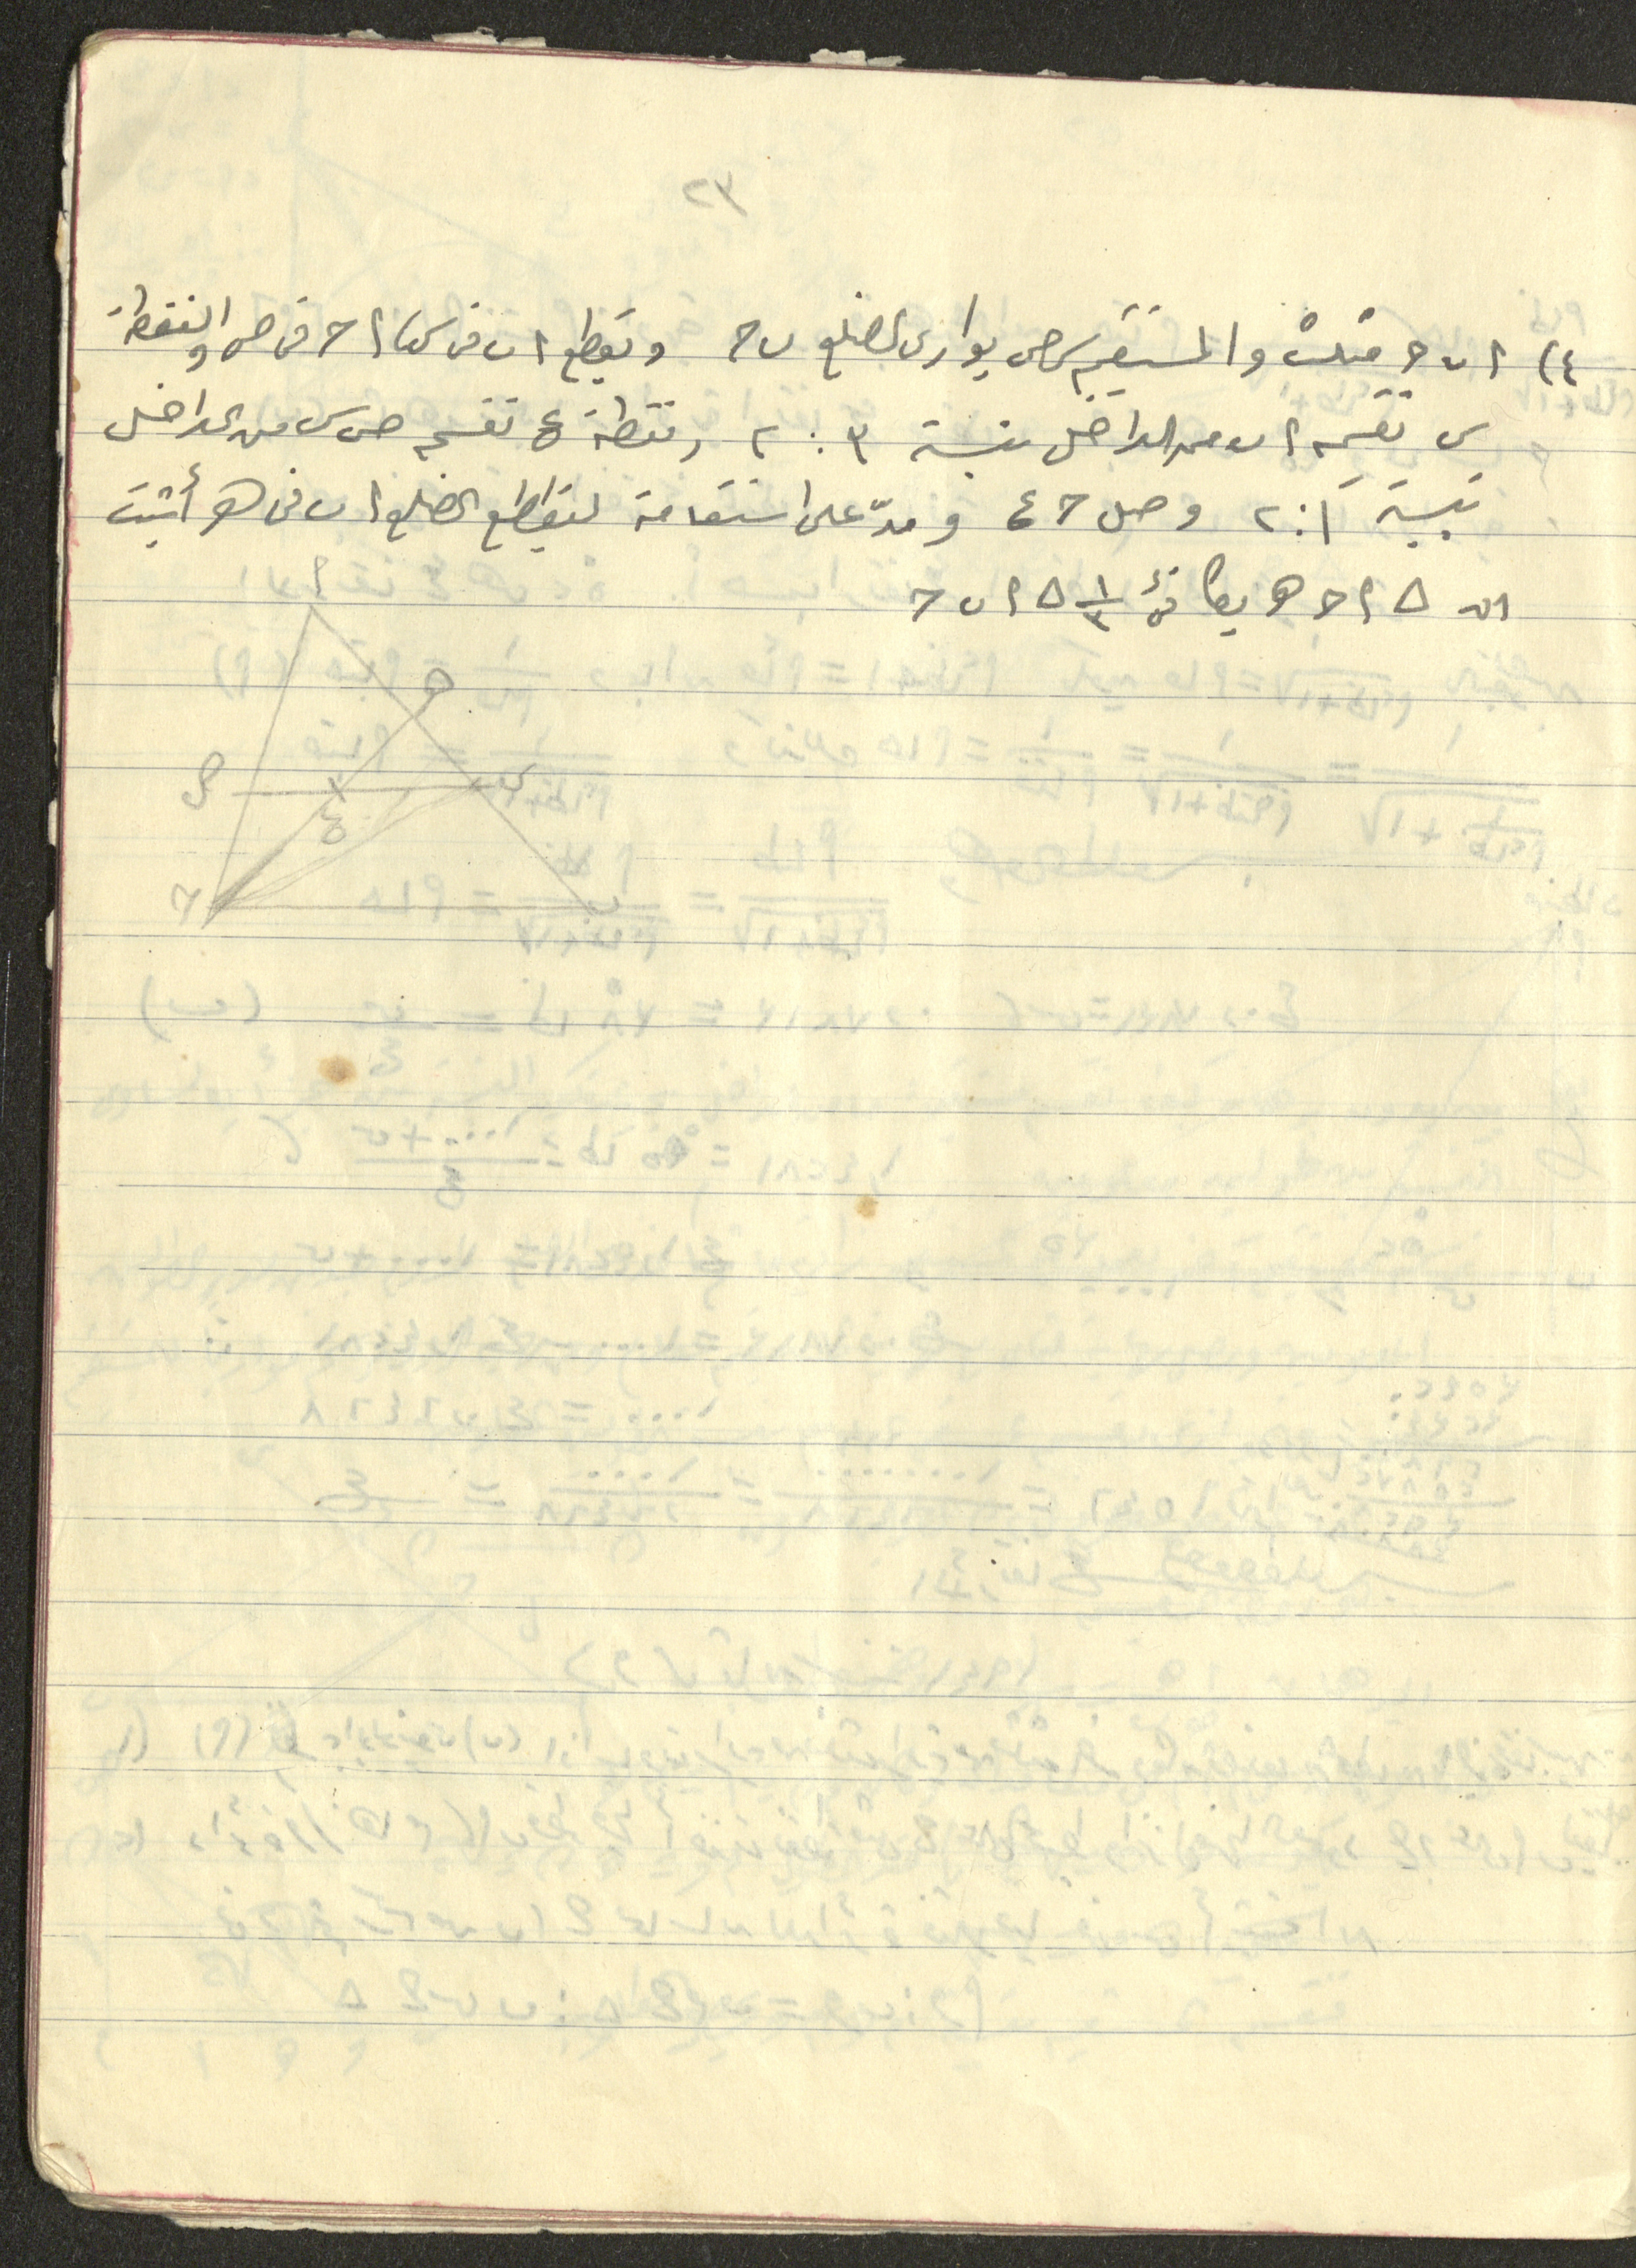 ٢٣
٤) ا ب ح مثلث والمستقيم س ص يوازى الضلع ب ح ويقطع ا ب فى س، ا ح فى ص والنقطة
س تقسم ا ب من الداخل بنسبة ٣ : ٢ ونقطة ع تقسم ص س من الداخل
بنسبة ١ : ٢ وصل ح ع ومدّ على استقامة ليقطع الضلع ا ب فى ھ أثبت
ان △ ا ح ھ يكافئ ١/٣ △ ا ب ح
ا
ھ
ص
س
ع
ح
ب